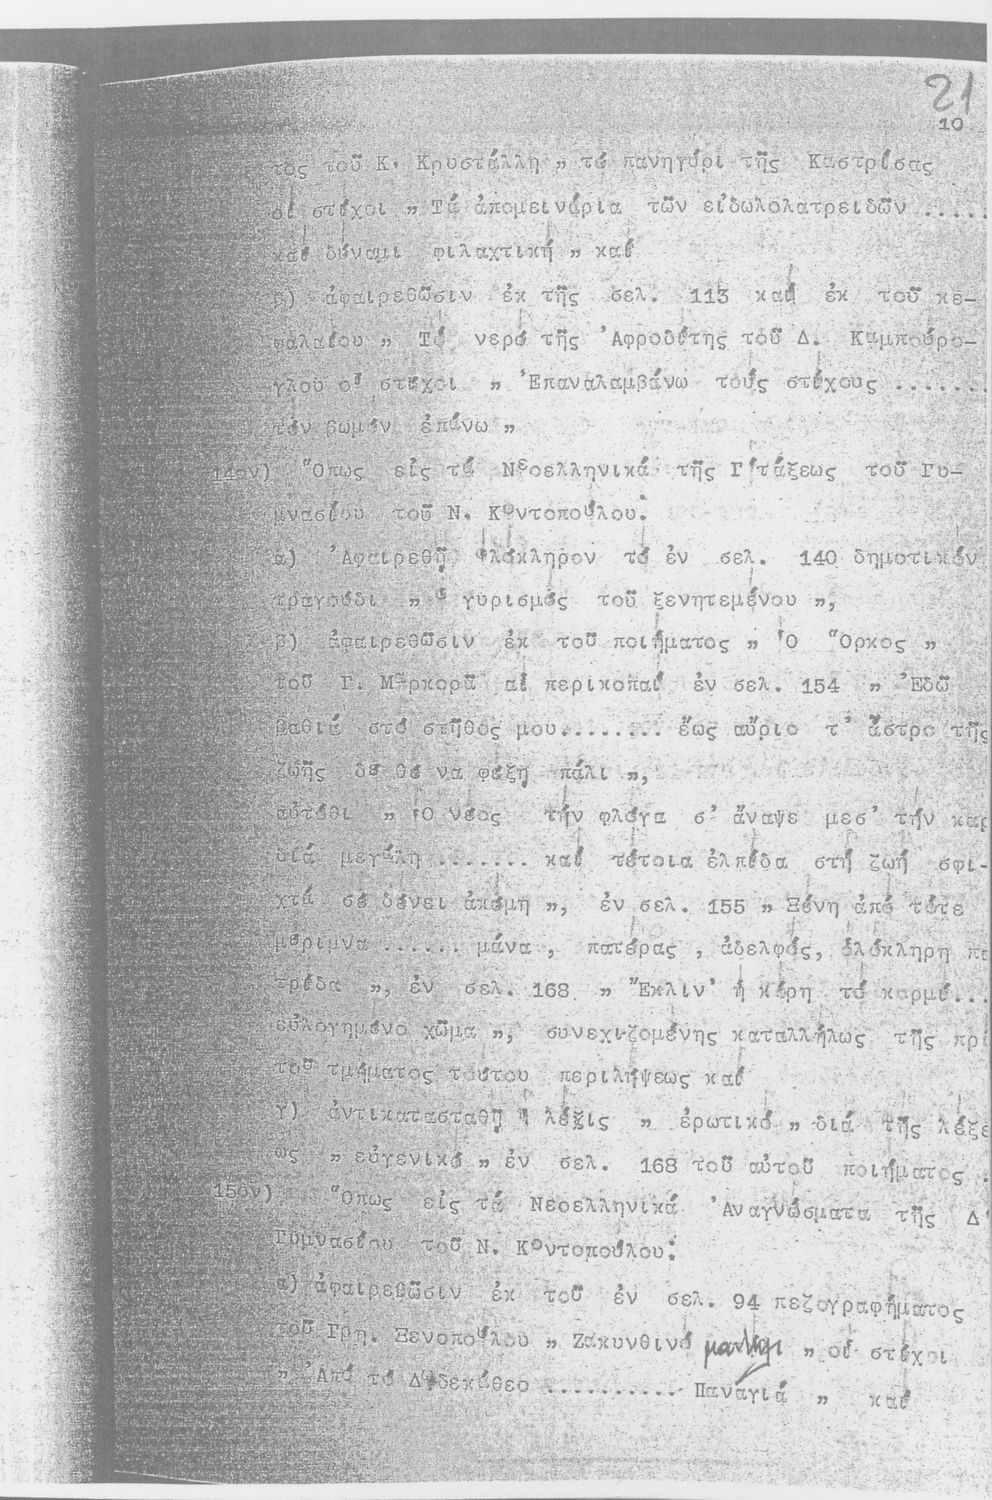 21
10
τος τοῦ Κ. Κρυστάλλη „ τό πανηγύρι τῆς Καστρίσας
οἱ στίχοι „ Τά ἀπομεινάρια τῶν εἰδωλολατρειδῶν .....
καί δύναμι φιλαχτική „ καί
β) ἀφαιρεθῶσιν ἐκ τῆς σελ. 113 καί ἐκ τοῦ κε-
φαλαίου „ Τό νερό τῆς Ἀφροδίτης τοῦ Δ. Καμπούρο-
γλου οἱ στίχοι „ Ἐπαναλαμβάνω τούς στίχους .......
τόν βωμόν ἐπάνω „
14ον) Ὅπως εἰς τά Νεοελληνικά τῆς Γ΄ τάξεως τοῦ Γυ-
μνασίου τοῦ Ν. Κοντοπούλου:
α) Ἀφαιρεθῇ ὁλόκληρον τό ἐν σελ. 140 δημοτικόν
τραγούδι „ ὁ γυρισμός τοῦ ξενητεμένου „,
β) ἀφαιρεθῶσιν ἐκ τοῦ ποιήματος „ Ὁ Ὅρκος „
τοῦ Γ. Μαρκορᾶ αἱ περικοπαί ἐν σελ. 154 „ Ἐδῶ
βαθιά στό στῆθος μου........ ἕως αὔριο τ' ἄστρο τῆς
ζωῆς δέ θέ να φέξῃ πάλι „,
αὐτόθι „ Ὁ νέος τήν φλόγα σ' ἄναψε μεσ' τήν καρ
διά μεγάλη ....... καί τέτοια ἐλπίδα στή ζωή σφι-
χτά σέ δένει ἀκόμη „, ἐν σελ. 155 „ Ξένη ἀπό τότε
μέριμνα ...... μάνα , πατέρας , ἀδελφός, ὁλόκληρη πα
τρίδα „, ἐν σελ. 168 „ Ἔκλιν' ἡ κόρη τό κορμί...
εὐλογημένο χῶμα „, συνεχιζομένης καταλλήλως τῆς πρό
τοῦ τμήματος τούτου περιλήψεως καί
γ) ἀντικατασταθῇ ἡ λέξις „ ἐρωτικό „ διά τῆς λέξε
ως „ εὐγενικό „ ἐν σελ. 168 τοῦ αὐτοῦ ποιήματος .
15ον) Ὅπως εἰς τά Νεοελληνικά Ἀναγνώσματα τῆς Δ'
Γυμνασίου τοῦ Ν. Κοντοπούλου:
α) ἀφαιρεθῶσιν ἐκ τοῦ ἐν σελ. 94 πεζογραφήματος
τοῦ Γρη. Ξενοπούλου „ Ζακυνθινό μαντήλι „ οἱ στίχοι
„ Ἀπό τό Δωδεκάθεο .......... Παναγιά „ καί